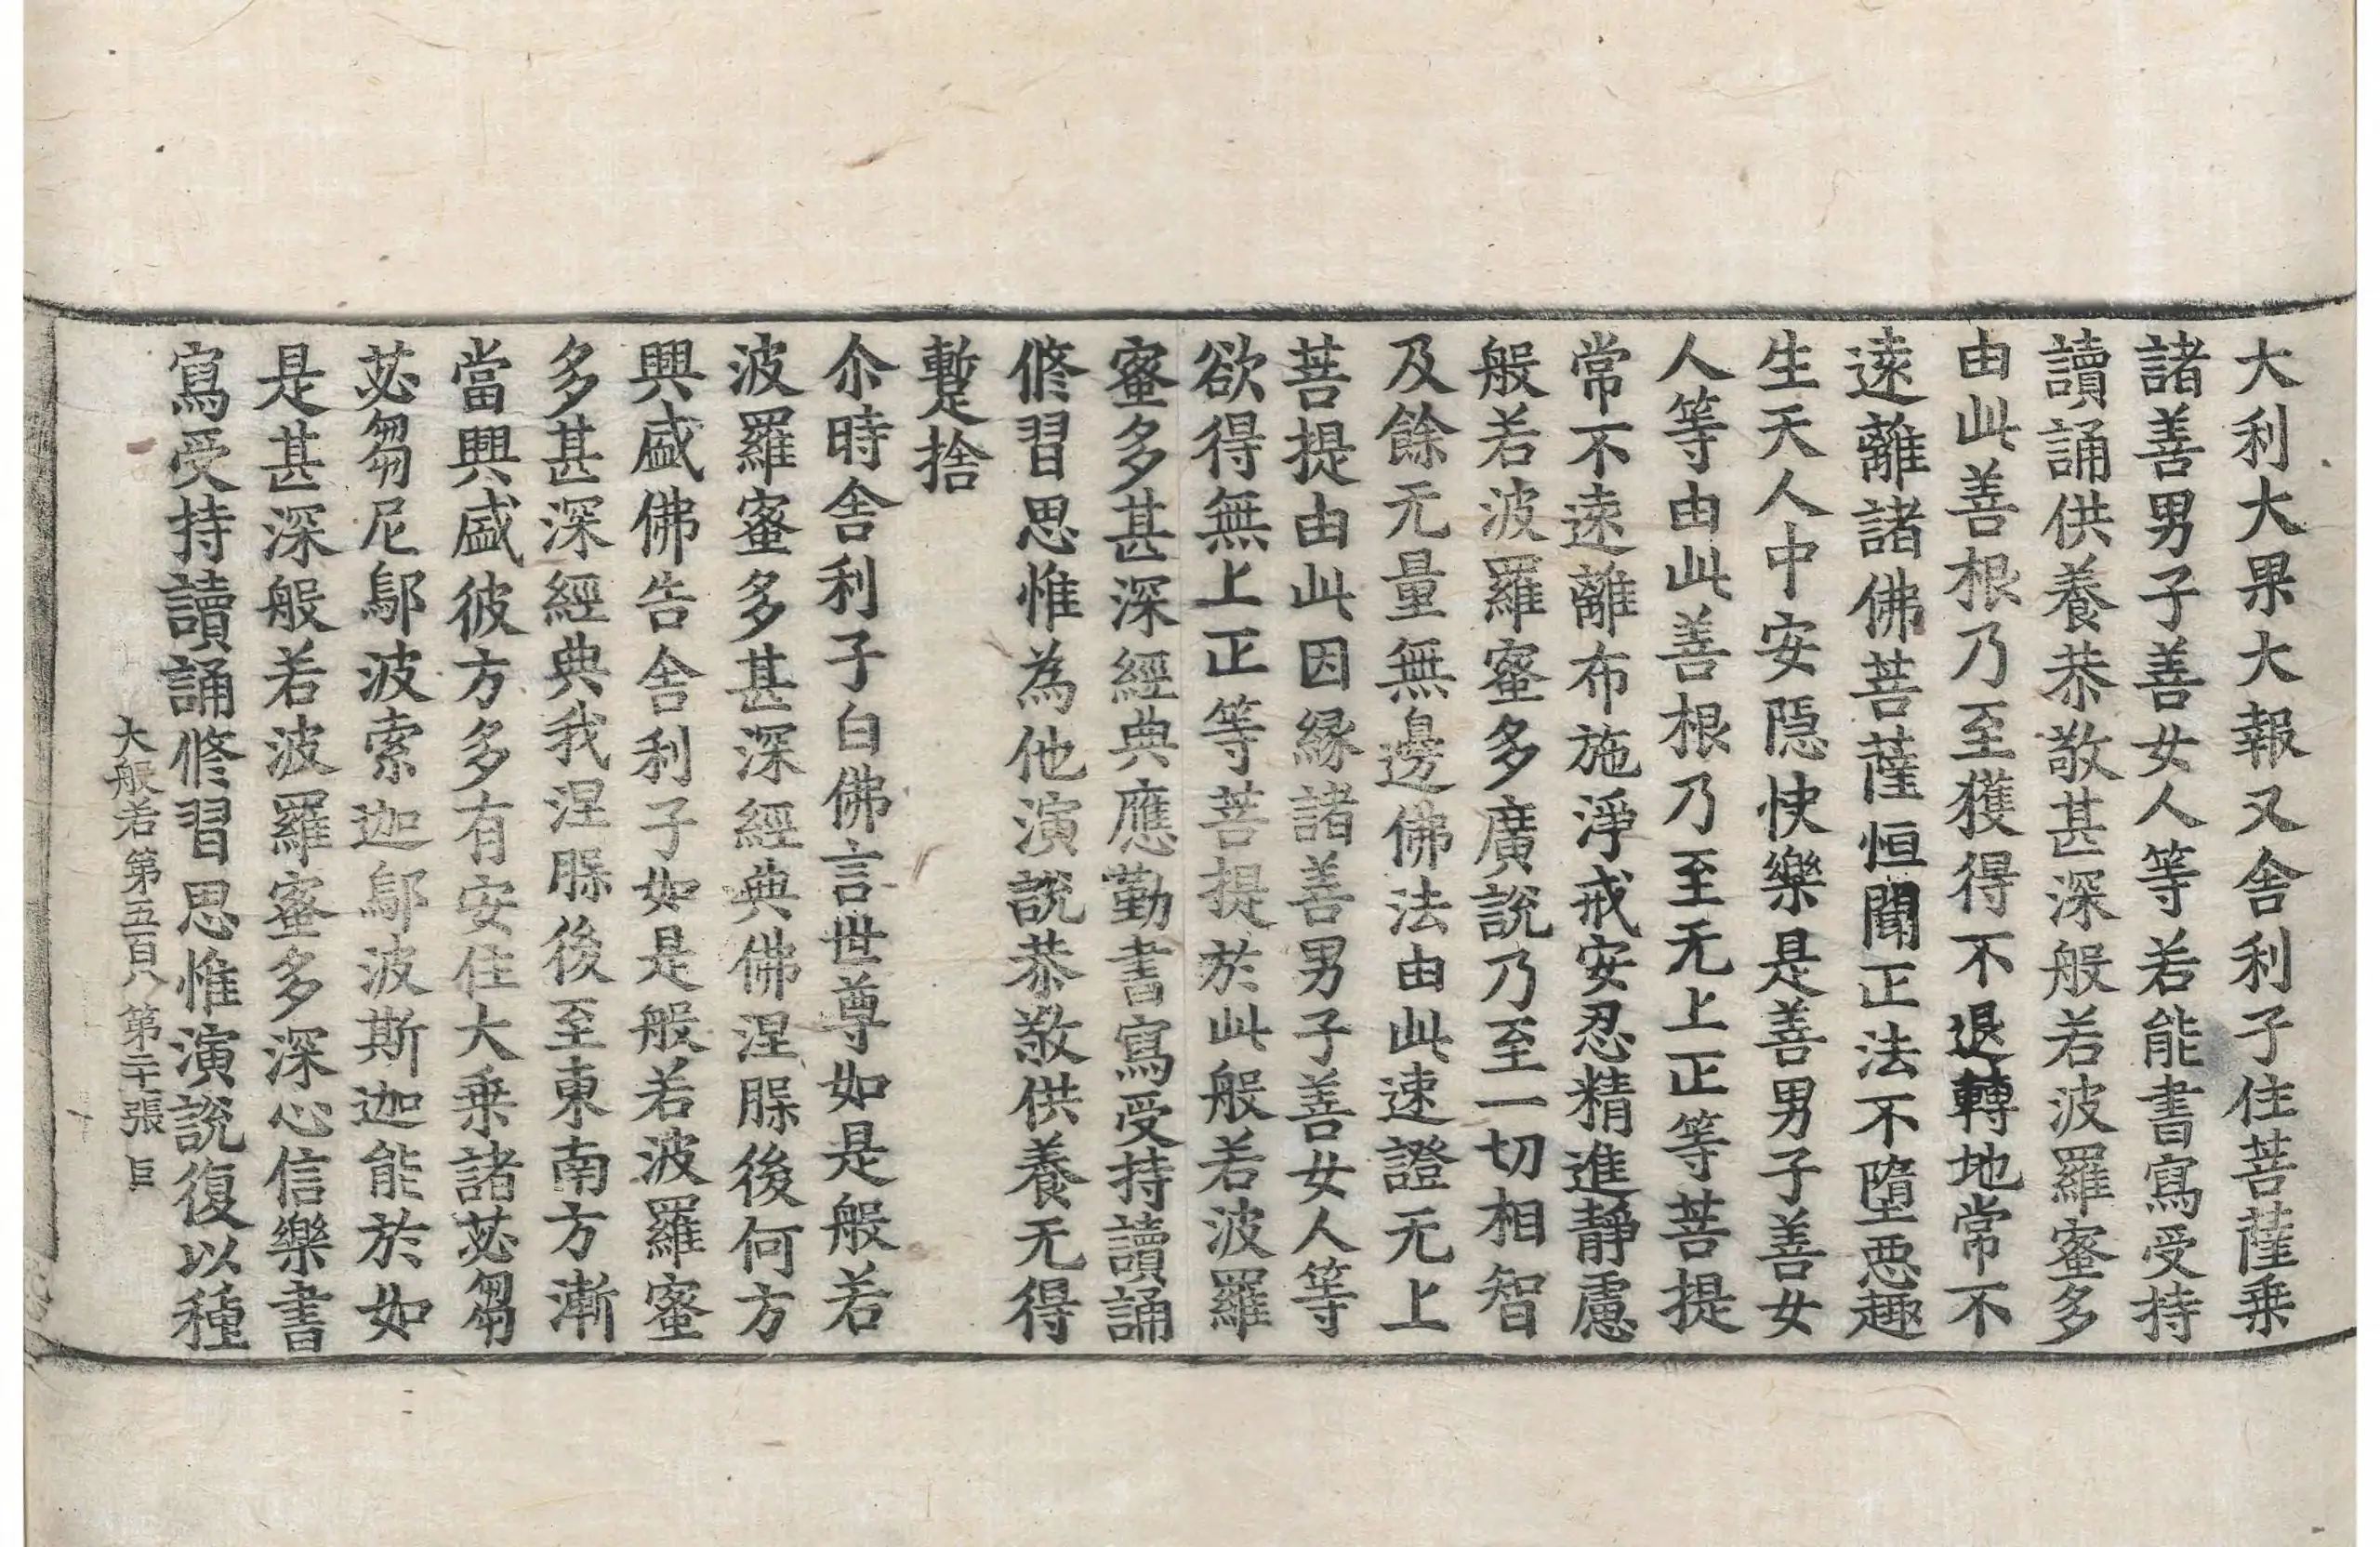 大利大果大報又舍利子住菩薩乗
諸善男子善女人等若能書寫受持
讀誦供養恭敬甚深般若波羅蜜多
由此善根乃至獲得不退轉地常不
遠離諸佛菩薩恒聞正法不墮惡趣
生天人中安隱快樂是善男子善女
人等由此善根乃至无上正等菩提
常不遠離布施淨戒安忍精進靜慮
般若波羅蜜多廣說乃至一切相智
及餘无量無邊佛法由此速證无上
菩提由此因緣諸善男子善女人等
欲得無上正等菩提於此般若波羅
蜜多甚深經典應勤書寫受持讀誦
修習思惟為他演說恭敬供養无得
蹔捨
尒時舍利子白佛言世尊如是般若
波羅蜜多甚深經典佛涅槃後何方
興盛佛告舍利子如是般若波羅蜜
多甚深經典我涅槃後至東南方漸
當興盛彼方多有安住大乗諸苾芻
苾芻尼鄔波索迦鄔波斯迦能於如
是甚深般若波羅蜜多深心信樂書
寫受持讀誦修習思惟演說復以種
大般若第五百八 第二十張 巨